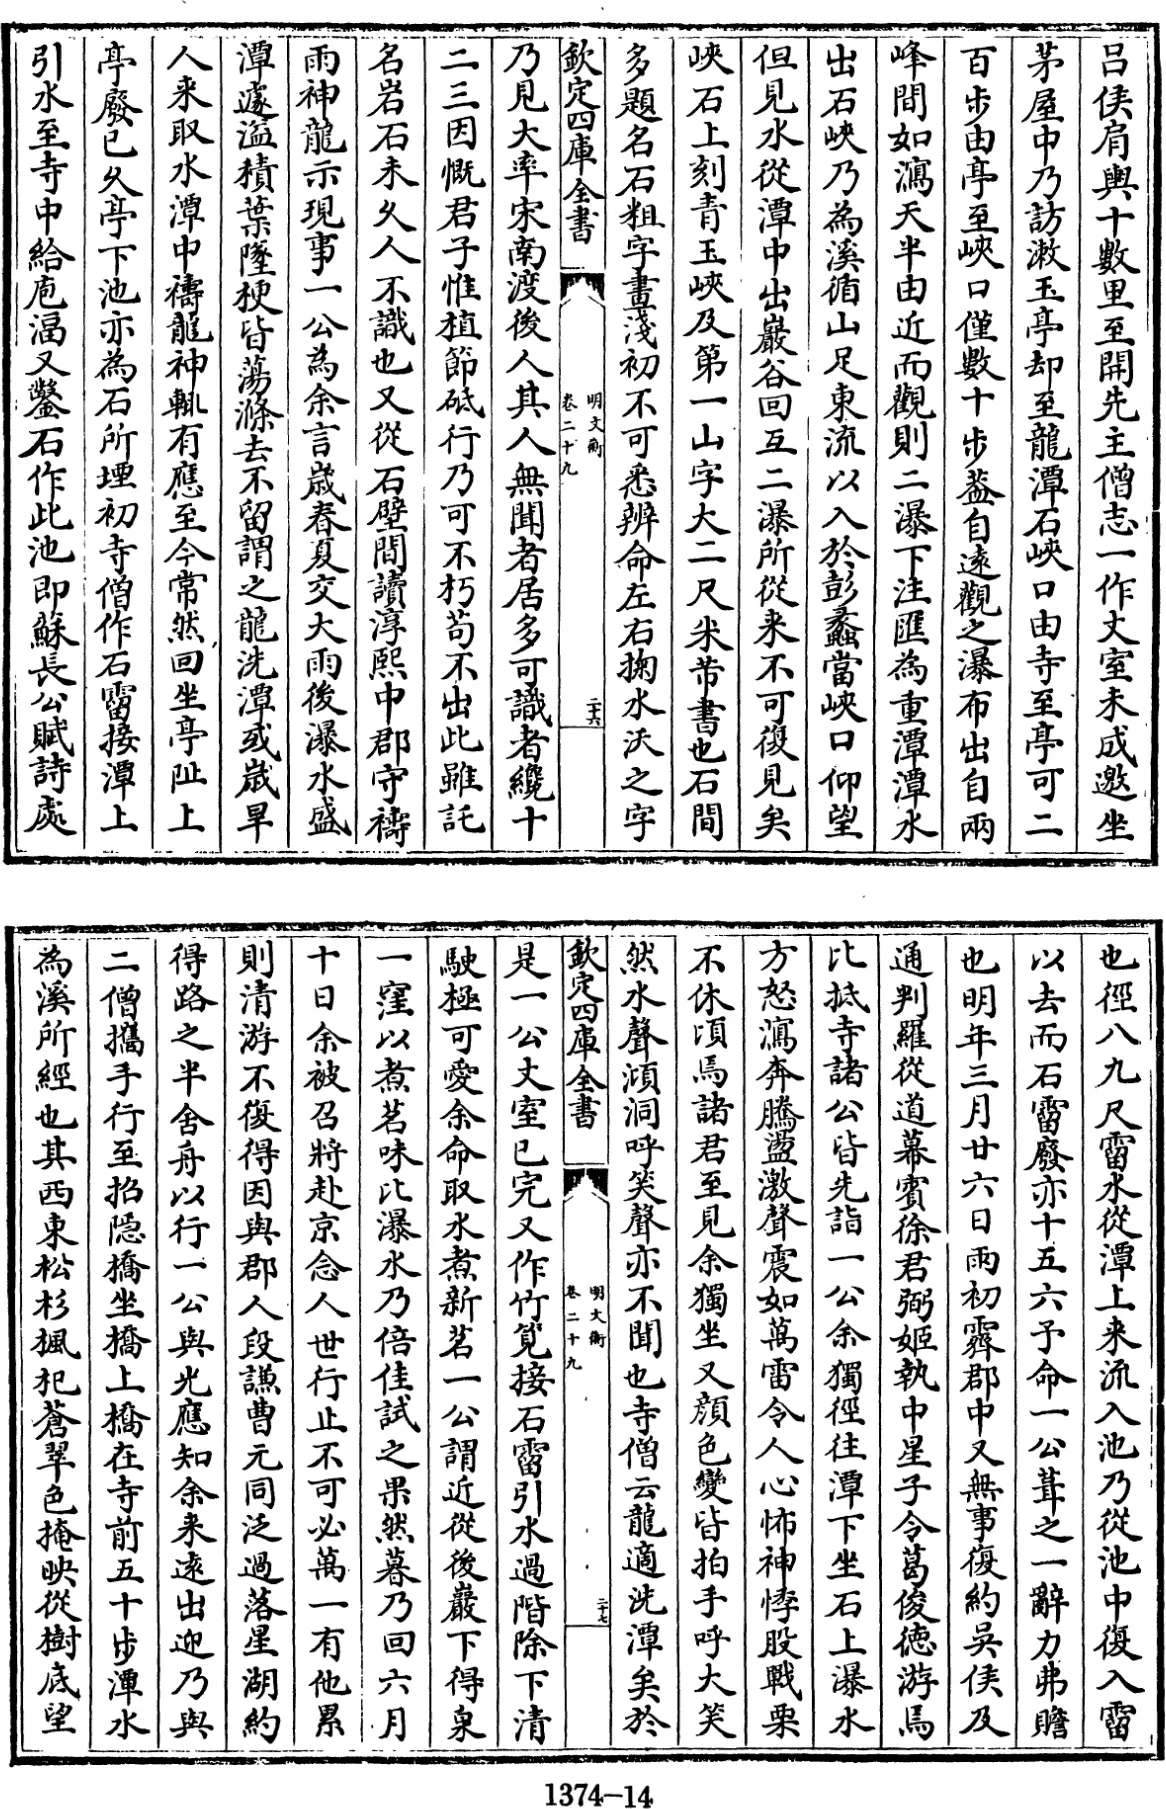 吕侯肩輿十數里至開先主僧志一作丈室未成邀坐
茅屋中乃訪漱玉亭却至龍潭石峽口由寺至亭可二
百步由亭至峽口僅數十步葢自逺觀之瀑布出自兩
峰間如瀉天半由近而觀則二瀑下注匯為重潭潭水
出石峽乃為溪循山足東流以入於彭蠡當峽口仰望
但見水從潭中出巖谷回互二瀑所從来不可復見矣
峽石上刻青玉峽及第一山字大二尺米芾書也石間
多題名石粗字畫淺初不可悉辨命左右掬水沃之字
欽定四庫全書
明文衡
卷二十九
二十六
乃見大率宋南渡後人其人無聞者居多可識者纔十
二三因慨君子惟植節砥行乃可不朽苟不出此雖託
名岩石未久人不識也又從石壁間讀淳熙中郡守禱
雨神龍示現事一公為余言嵗春夏交大雨後瀑水盛
潭遽溢積葉墜梗皆蕩滌去不留謂之龍洗潭或嵗旱
人来取水潭中禱龍神輒有應至今常然回坐亭址上
亭廢已久亭下池亦為石所堙初寺僧作石霤接潭上
引水至寺中給庖湢又鑿石作此池即蘇長公賦詩處
也徑八九尺霤水從潭上来流入池乃從池中復入霤
以去而石霤廢亦十五六予命一公葺之一辭力弗贍
也明年三月廿六日雨初霽郡中又無事復約吳侯及
通判羅從道幕賓徐君弼姬執中星子令葛俊徳游焉
比抵寺諸公皆先詣一公余獨徑往潭下坐石上瀑水
方怒瀉奔騰盪激聲震如萬雷令人心怖神悸股戰栗
不休頃焉諸君至見余獨坐又顔色變皆拍手呼大笑
然水聲澒洞呼笑聲亦不聞也寺僧云龍適洗潭矣於
欽定四庫全書
明文衡
卷二十九
二十七
是一公丈室已完又作竹筧接石霤引水過階除下清
駛極可愛余命取水煮新茗一公謂近從後巖下得泉
一窪以煮茗味比瀑水乃倍佳試之果然暮乃回六月
十日余被召將赴京念人世行止不可必萬一有他累
則清游不復得因與郡人段謙曹元同泛過落星湖約
得路之半舍舟以行一公與光應知余来逺出迎乃與
二僧攜手行至招隠橋坐橋上橋在寺前五十步潭水
為溪所經也其西東松杉楓杞蒼翠色掩映從樹底望
1374-14